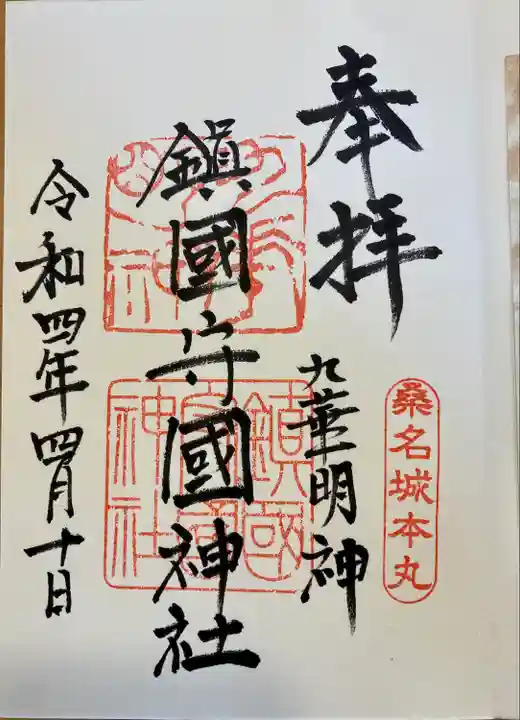 奉拝
桑名城本丸
九華明神
鎭國守國神社
鎮國
守國
神社
令和四年四月十日